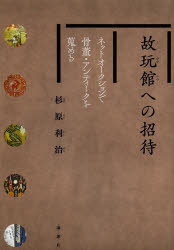 故玩館への招待
ネットオークションで
骨董・アンティークを
蒐める
杉原利治